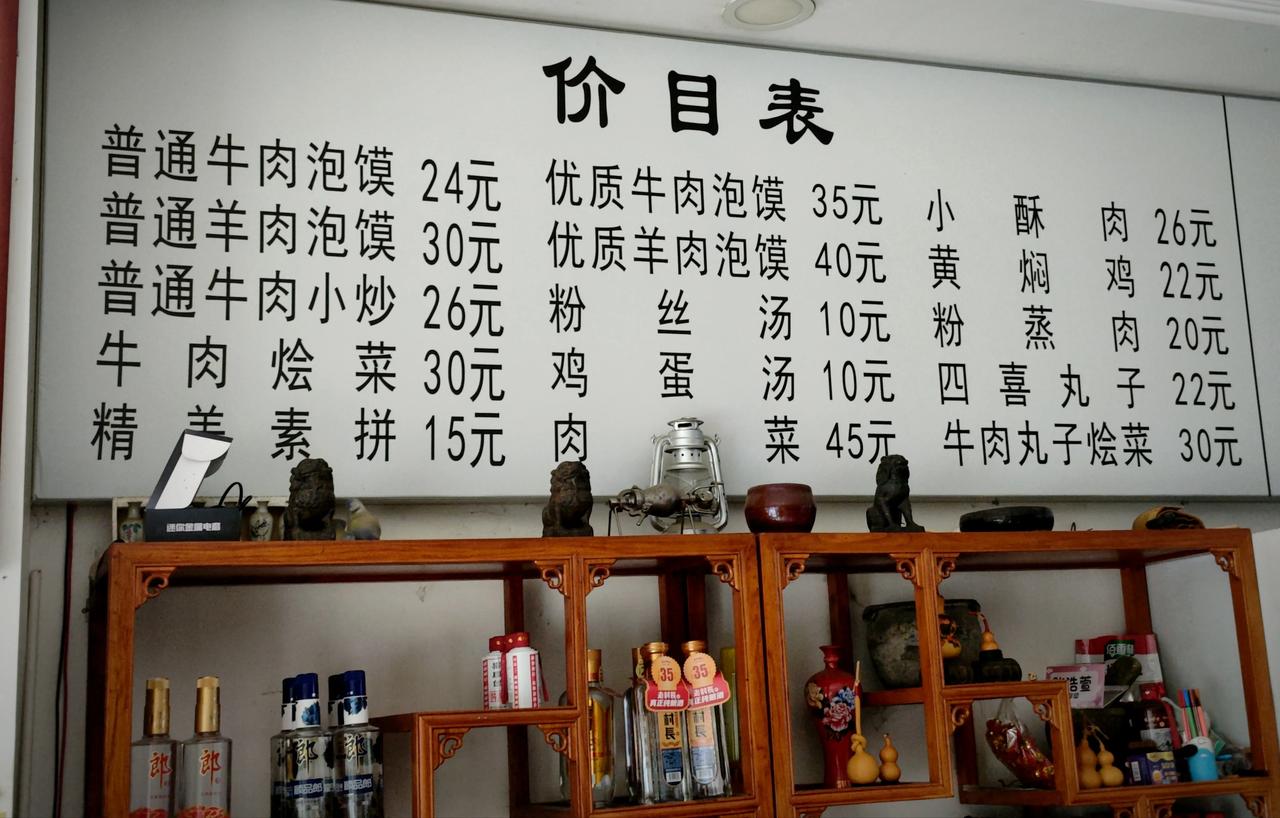 价目表
普通牛肉泡馍 24元
普通羊肉泡馍 30元
普通牛肉小炒 26元
牛肉烩菜 30元
精美素拼 15元
优质牛肉泡馍 35元
优质羊肉泡馍 40元
粉丝汤 10元
鸡蛋汤 10元
肉菜 45元
小酥肉 26元
黄焖鸡 22元
粉蒸肉 20元
四喜丸子 22元
牛肉丸子烩菜 30元
迷你金属电扇
郎
郎
郎
郎
35
35
村长
村長